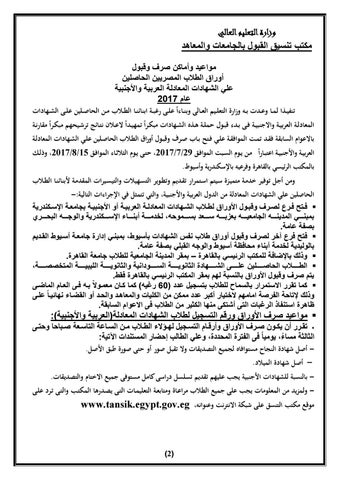 وزارة التعليم العالي
مكتب تنسيق القبول بالجامعات والمعاهد
مواعيد وأماكن صرف وقبول
أوراق الطلاب المصريين الحاصلين
علي الشهادات المعادلة العربية والأجنبية
عام 2017
تنفيذا لما وعدت به وزارة التعليم العالي وبناءاً علي رغبة ابنائنا الطلاب من الحاصلين علي الشهادات
المعادلة العربية والاجنبية في بدء قبول حملة هذه الشهادات مبكراً تمهيداً لاعلان نتائج ترشيحهم مبكراً مقارنة
بالاعوام السابقة فقد تمت الموافقة علي فتح باب صرف وقبول أوراق الطلاب الحاصلين علي الشهادات المعادلة
العربية والأجنبية اعتباراً من يوم السبت الموافق 2017/7/29، حتى يوم الثلاثاء الموافق 2017/8/15، وذلك
بالمكتب الرئيسي بالقاهرة وفرعيه بالإسكندرية وأسيوط.
ومن أجل توفير خدمة متميزة سيتم استمرار تقديم وتطوير التسهيلات والتيسيرات المقدمة لأبنائنا الطلاب
الحاصلين علي الشهادات المعادلة من الدول العربية والأجنبية، والتي تتمثل في الإجراءات التالية:–
▪ فتح فرع لصرف وقبول الأوراق لطلاب الشهادات المعادلة العربية أو الأجنبية بجامعة الإسكندرية
بمبني المدينة الجامعية بعزبه سعد بسموحه، لخدمة أبناء الإسكندرية والوجه البحري
بصفة عامة.
▪ فتح فرع آخر لصرف وقبول أوراق طلاب نفس الشهادات بأسيوط، بمبني إدارة جامعة أسيوط القديم
بالوليدية لخدمة أبناء محافظة أسيوط والوجه القبلي بصفة عامة.
▪ وذلك بالإضافة للمكتب الرئيسي بالقاهرة – بمقر المدينة الجامعية لطلاب جامعة القاهرة.
▪ الطلاب الحاصلين على الشهادة الثانوية السودانية والثانوية الليبية المتخصصة،
يتم صرف وقبول الأوراق بالنسبة لهم بمقر المكتب الرئيسي بالقاهرة فقط.
▪ كما تقرر الاستمرار بالسماح للطلاب بتسجيل عدد (60 رغبه) كما كان معمولاً به فى العام الماضي
وذلك لإتاحة الفرصة امامهم لاختيار أكبر عدد ممكن من الكليات والمعاهد والحد أو القضاء نهائياً على
ظاهرة استنفاذ الرغبات التى أشتكى منها الكثير من الطلاب فى الاعوام السابقة.
▪ مواعيد صرف الأوراق ورقم التسجيل لطلاب الشهادات المعادلة(العربية والأجنبية):
. تقرر أن يكون صرف الأوراق وأرقام التسجيل لهؤلاء الطلاب من الساعة التاسعة صباحا وحتى
الثالثة مساءً، يومياً فى الفترة المحددة، وعلي الطالب إحضار المستندات الآتية:
– أصل شهادة النجاح مستوفاه لجميع التصديقات ولا تقبل صور أو حتى صورة طبق الأصل.
– أصل شهادة الميلاد.
– بالنسبة للشهادات الأجنبية يجب عليهم تقديم تسلسل دراسي كامل مستوفى جميع الاختام والتصديقات.
– ولمزيد من المعلومات يجب علي جميع الطلاب مراعاة ومتابعة التعليمات التي يصدرها المكتب والتي ترد على
موقع مكتب التنسق علي شبكة الانترنت وعنوانه، www.tansik.egypt.gov.eg
(2)